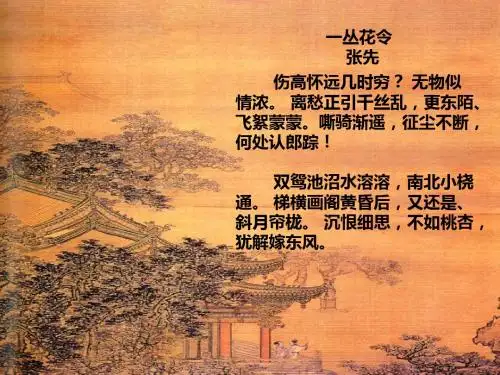 一丛花令
张先
伤高怀远几时穷？ 无物似
情浓。 离愁正引千丝乱，更东陌、
飞絮蒙蒙。嘶骑渐遥，征尘不断，
何处认郎踪！
双鸳池沼水溶溶，南北小桡
通。 梯横画阁黄昏后，又还是、
斜月帘栊。 沉恨细思，不如桃杏，
犹解嫁东风。